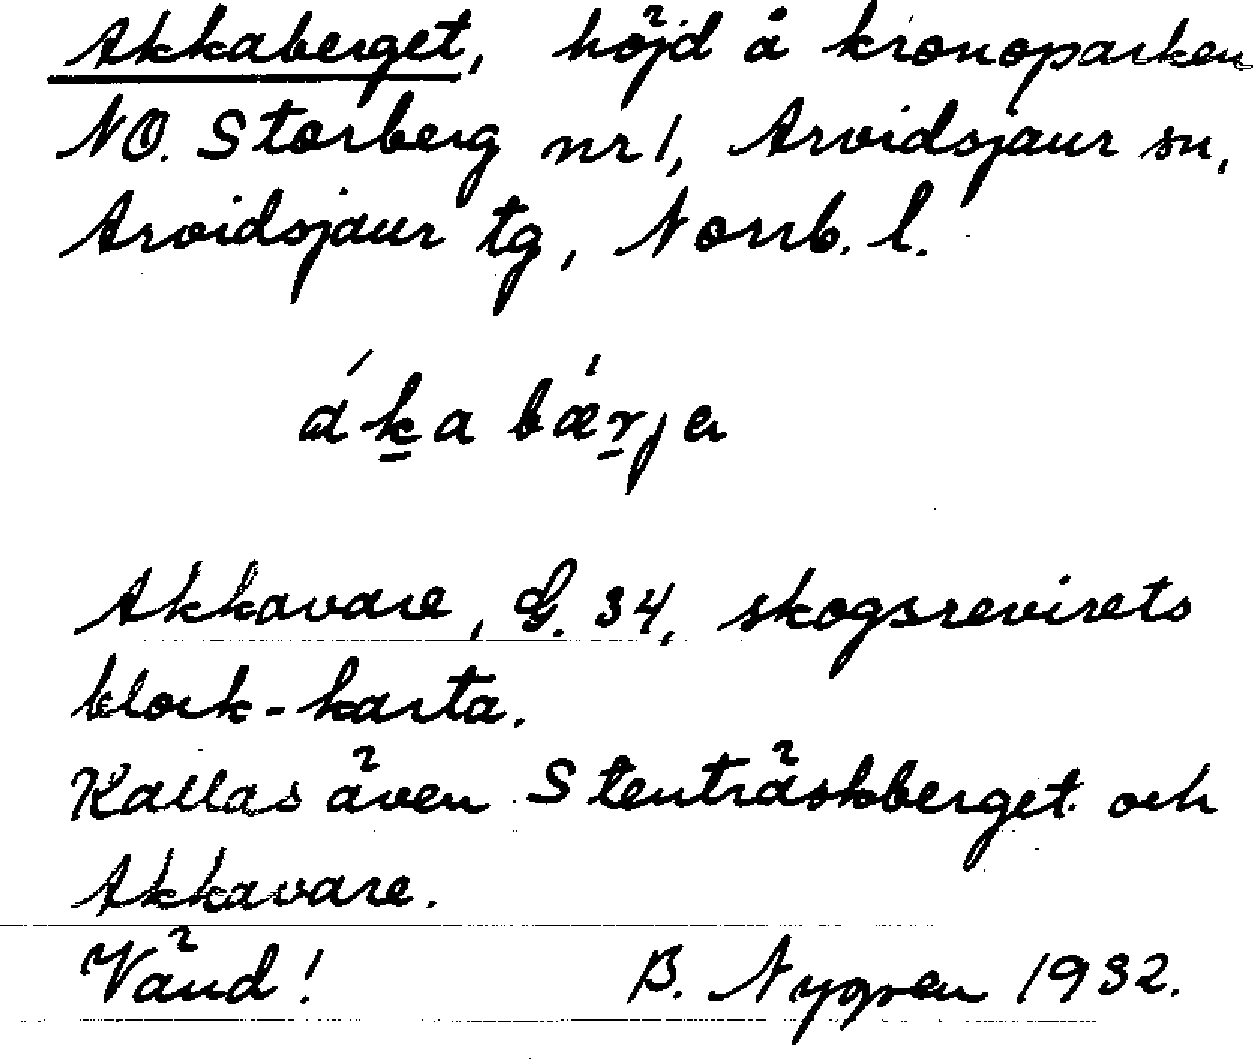 Akkaberget, höjd å kronoparken
NO. Storberg nr 1, Arvidsjaur sn,
Arvidsjaur tg, Norrb. l.
áḵa bǽṟja
Akkavare, G. 34, skogsrevirets
block-karta.
Kallas även Stenträskberget och
Akkavare.
Vänd! B. Nygren 1932.